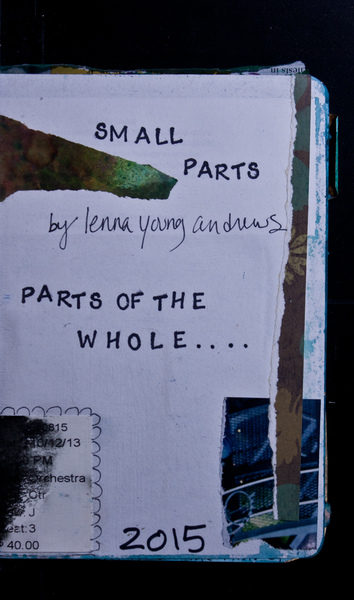 SMALL
PARTS
by lenna young andrews
PARTS OF THE
WHOLE....
815
/12/13
PM
Orchestra
Ctr
J
eat:3
40.00
2015